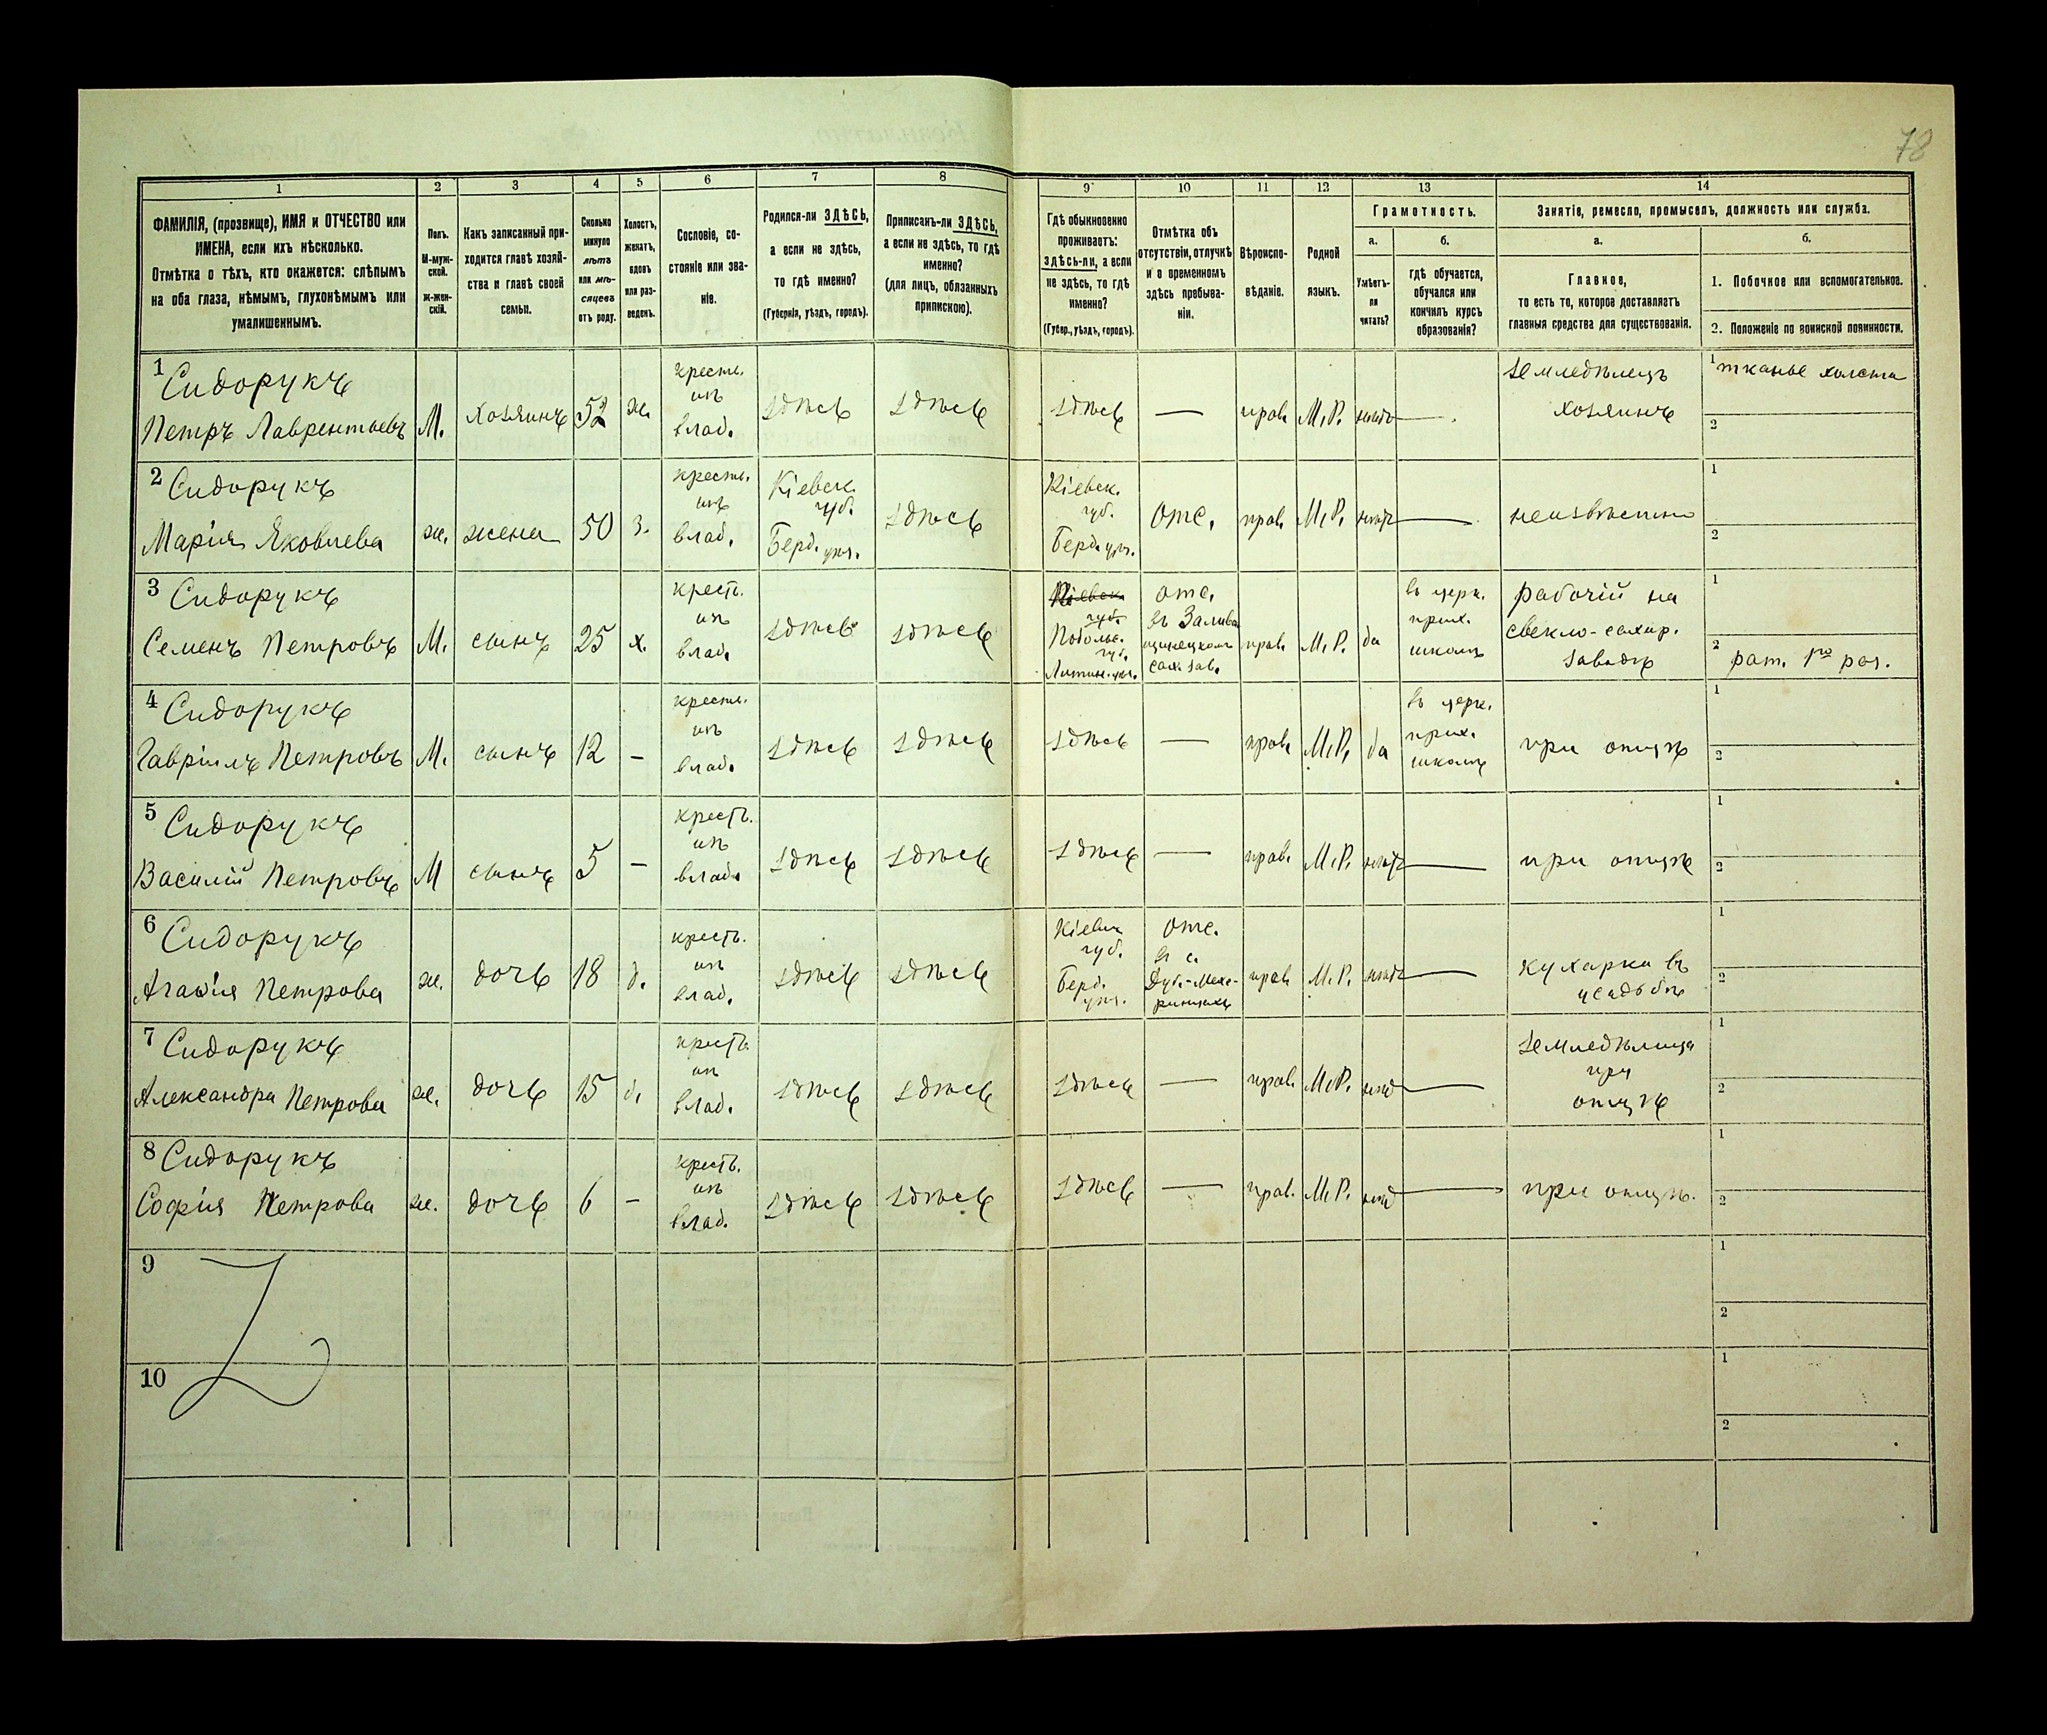 78
1 2 3 4 5 6 7 8 9 10 11 12 13 14
ФАМИЛІЯ, (прозвище), ИМЯ и ОТЧЕСТВО или
ИМЕНА, если ихъ нѣсколько.
Отмѣтка о тѣхъ, кто окажется: слѣпымъ
на оба глаза, нѣмымъ, глухонѣмымъ или
умалишеннымъ.
Полъ.
М-муж-
ской.
Ж-жен-
скій.
Какъ записанный при-
ходится главѣ хозяй-
ства и главѣ своей
семьи.
Сколько
минуло
лѣтъ
или мѣ-
сяцевъ
отъ роду.
Холостъ,
женатъ,
вдовъ
или раз-
веденъ.
Сословіе, со-
стояніе или зва-
ніе.
Родился-ли ЗДѢСЬ,
а если не здѣсь,
то гдѣ именно?
(Губернія, уѣздъ, городъ).
Приписанъ-ли ЗДѢСЬ,
а если не здѣсь, то гдѣ
именно?
(для лицъ, обязанныхъ
припискою).
Гдѣ обыкновенно
проживаетъ:
здѣсь-ли, а если
не здѣсь, то гдѣ
именно?
(Губер., уѣздъ, городъ).
Отмѣтка объ
отсутствіи, отлучкѣ
и о временномъ
здѣсь пребыва-
ніи.
Вѣроиспо-
вѣданіе.
Родной
языкъ.
Грамотность.
а.
Умѣетъ-
ли
читать?
б.
гдѣ обучается,
обучался или
кончилъ курсъ
образованія?
Занятіе, ремесло, промыселъ, должность или служба.
а.
Главное,
то есть то, которое доставляетъ
главныя средства для существованія.
б.
1. Побочное или вспомогательное.
2. Положеніе по воинской повинности.
1 Сидорукъ
Петръ Лаврентьевъ
М.
хозяинъ
52
ж.
крестьн.
изъ
влад.
здѣсь
здѣсь
здѣсь
—
прав.
М.Р.
—
земледѣлецъ
хозяинъ
1 тканье холста
2
2 Сидорукъ
Марія Яковлева
ж.
жена
50
з.
влад.
Кіевск.
губ.
Берд. уѣз.
здѣсь
Кіевск.
губ.
Берд. уѣз.
отс.
прав.
М.Р.
—
неизвѣстно
1
2
3 Сидорукъ
Семенъ Петровъ
М.
сынъ
25
х.
влад.
здѣсь
здѣсь
Кіевск.
губ.
Подольс.
губ.
Литин. уѣз.
отс.
сах. зав.
прав.
М.Р.
да
въ церк.
прих.
школѣ
рабочій на
свекло-сахар.
заводѣ
1
2 рат. 1го раз.
4 Сидорукъ
Гавріилъ Петровъ
М.
сынъ
12
–
влад.
здѣсь
здѣсь
здѣсь
—
прав.
М.Р.
да
въ церк.
прих.
школѣ
при отцѣ
1
2
5 Сидорукъ
Василій Петровъ
М
сынъ
5
–
влад.
здѣсь
здѣсь
здѣсь
—
прав.
М.Р.
—
при отцѣ
1
2
6 Сидорукъ
Агаѳія Петрова
ж.
дочь
18
д.
влад.
здѣсь
здѣсь
губ.
Берд.
уѣз.
отс.
въ с.
прав.
М.Р.
—
кухарка въ
усадьбѣ
1
2
7 Сидорукъ
Александра Петрова
ж.
дочь
15
д.
влад.
здѣсь
здѣсь
здѣсь
—
прав.
М.Р.
—
земледѣлица
при
отцѣ
1
2
8 Сидорукъ
Софія Петрова
ж.
дочь
6
–
влад.
здѣсь
здѣсь
здѣсь
—
прав.
М.Р.
—
при отцѣ.
1
2
9
1
2
10
1
2